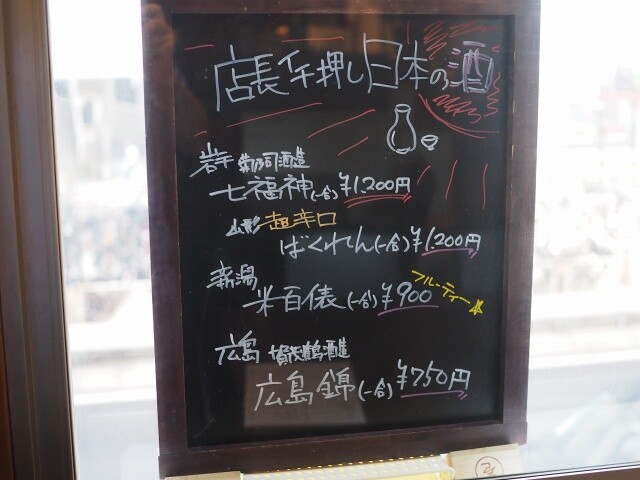 店長イチ押し日本の酒
岩手 菊の司酒造
七福神(一合)¥1.200円
山形 超辛口
ばくれん(一合)¥1.200円
新潟
米百俵(一合)¥900
フルーティー☆
広島 賀茂鶴酒造
広島錦(一合)¥750円